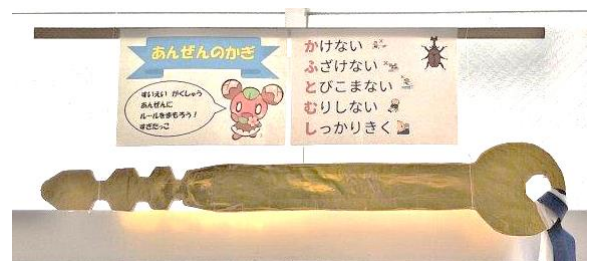 あんぜんのかぎ
すいえい がくしゅう
あんぜんに
ルールをまもろう！
すぎだっこ
かけない
ふざけない
とびこまない
むりしない
しっかりきく